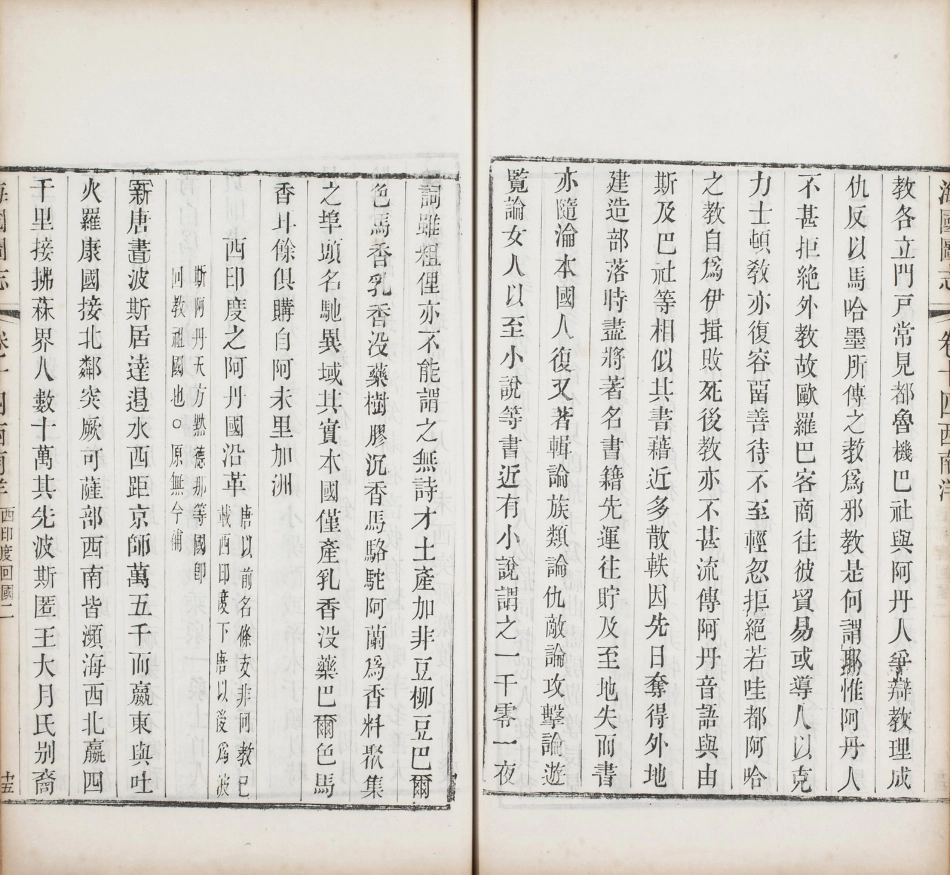 海國圖志 卷十四 西南洋
教各立門戸常見都魯機巴社與阿丹人爭辯教理成
仇反以馬哈墨所傳之教爲邪教是何謂耶惟阿丹人
不甚拒絕外教故歐羅巴客商往彼貿易或導人以克
力士頓敎亦復容畱善待不至輕忽拒絕若哇都阿哈
之教自爲伊揖敗死後教亦不甚流傳阿丹音語與由
斯及巴社等相似其書藉近多散軼因先日奪得外地
建造部落時盡將著名書籍先運往貯及至地失而書
亦隨淪本國人復又著輯論族類論仇敵論攻擊論遊
覽論女人以至小說等書近有小說謂之一千零一夜
詞雖粗俚亦不能謂之無詩才土產加非豆椰豆巴爾
色馬香乳香没藥樹膠沉香馬駱駝阿蘭爲香料聚集
之埠頭名馳異域其實本國僅產乳香没藥巴爾色馬
香斗餘俱購自阿未里加洲
西印度之阿丹國沿革 唐以前名條支非囘教已
載西印度下唐以後爲波
斯阿丹天方黙德那等國卽
囘教祖國也○原無今補
新唐書波斯居達遏水西距京師萬五千而贏東與吐
火羅康國接北鄰突厥可薩部西南皆瀕海西北贏四
千里接拂菻界人數十萬其先波斯匿王大月氏别裔
海國圖志 卷十四 西南洋 西印度回國二 十五